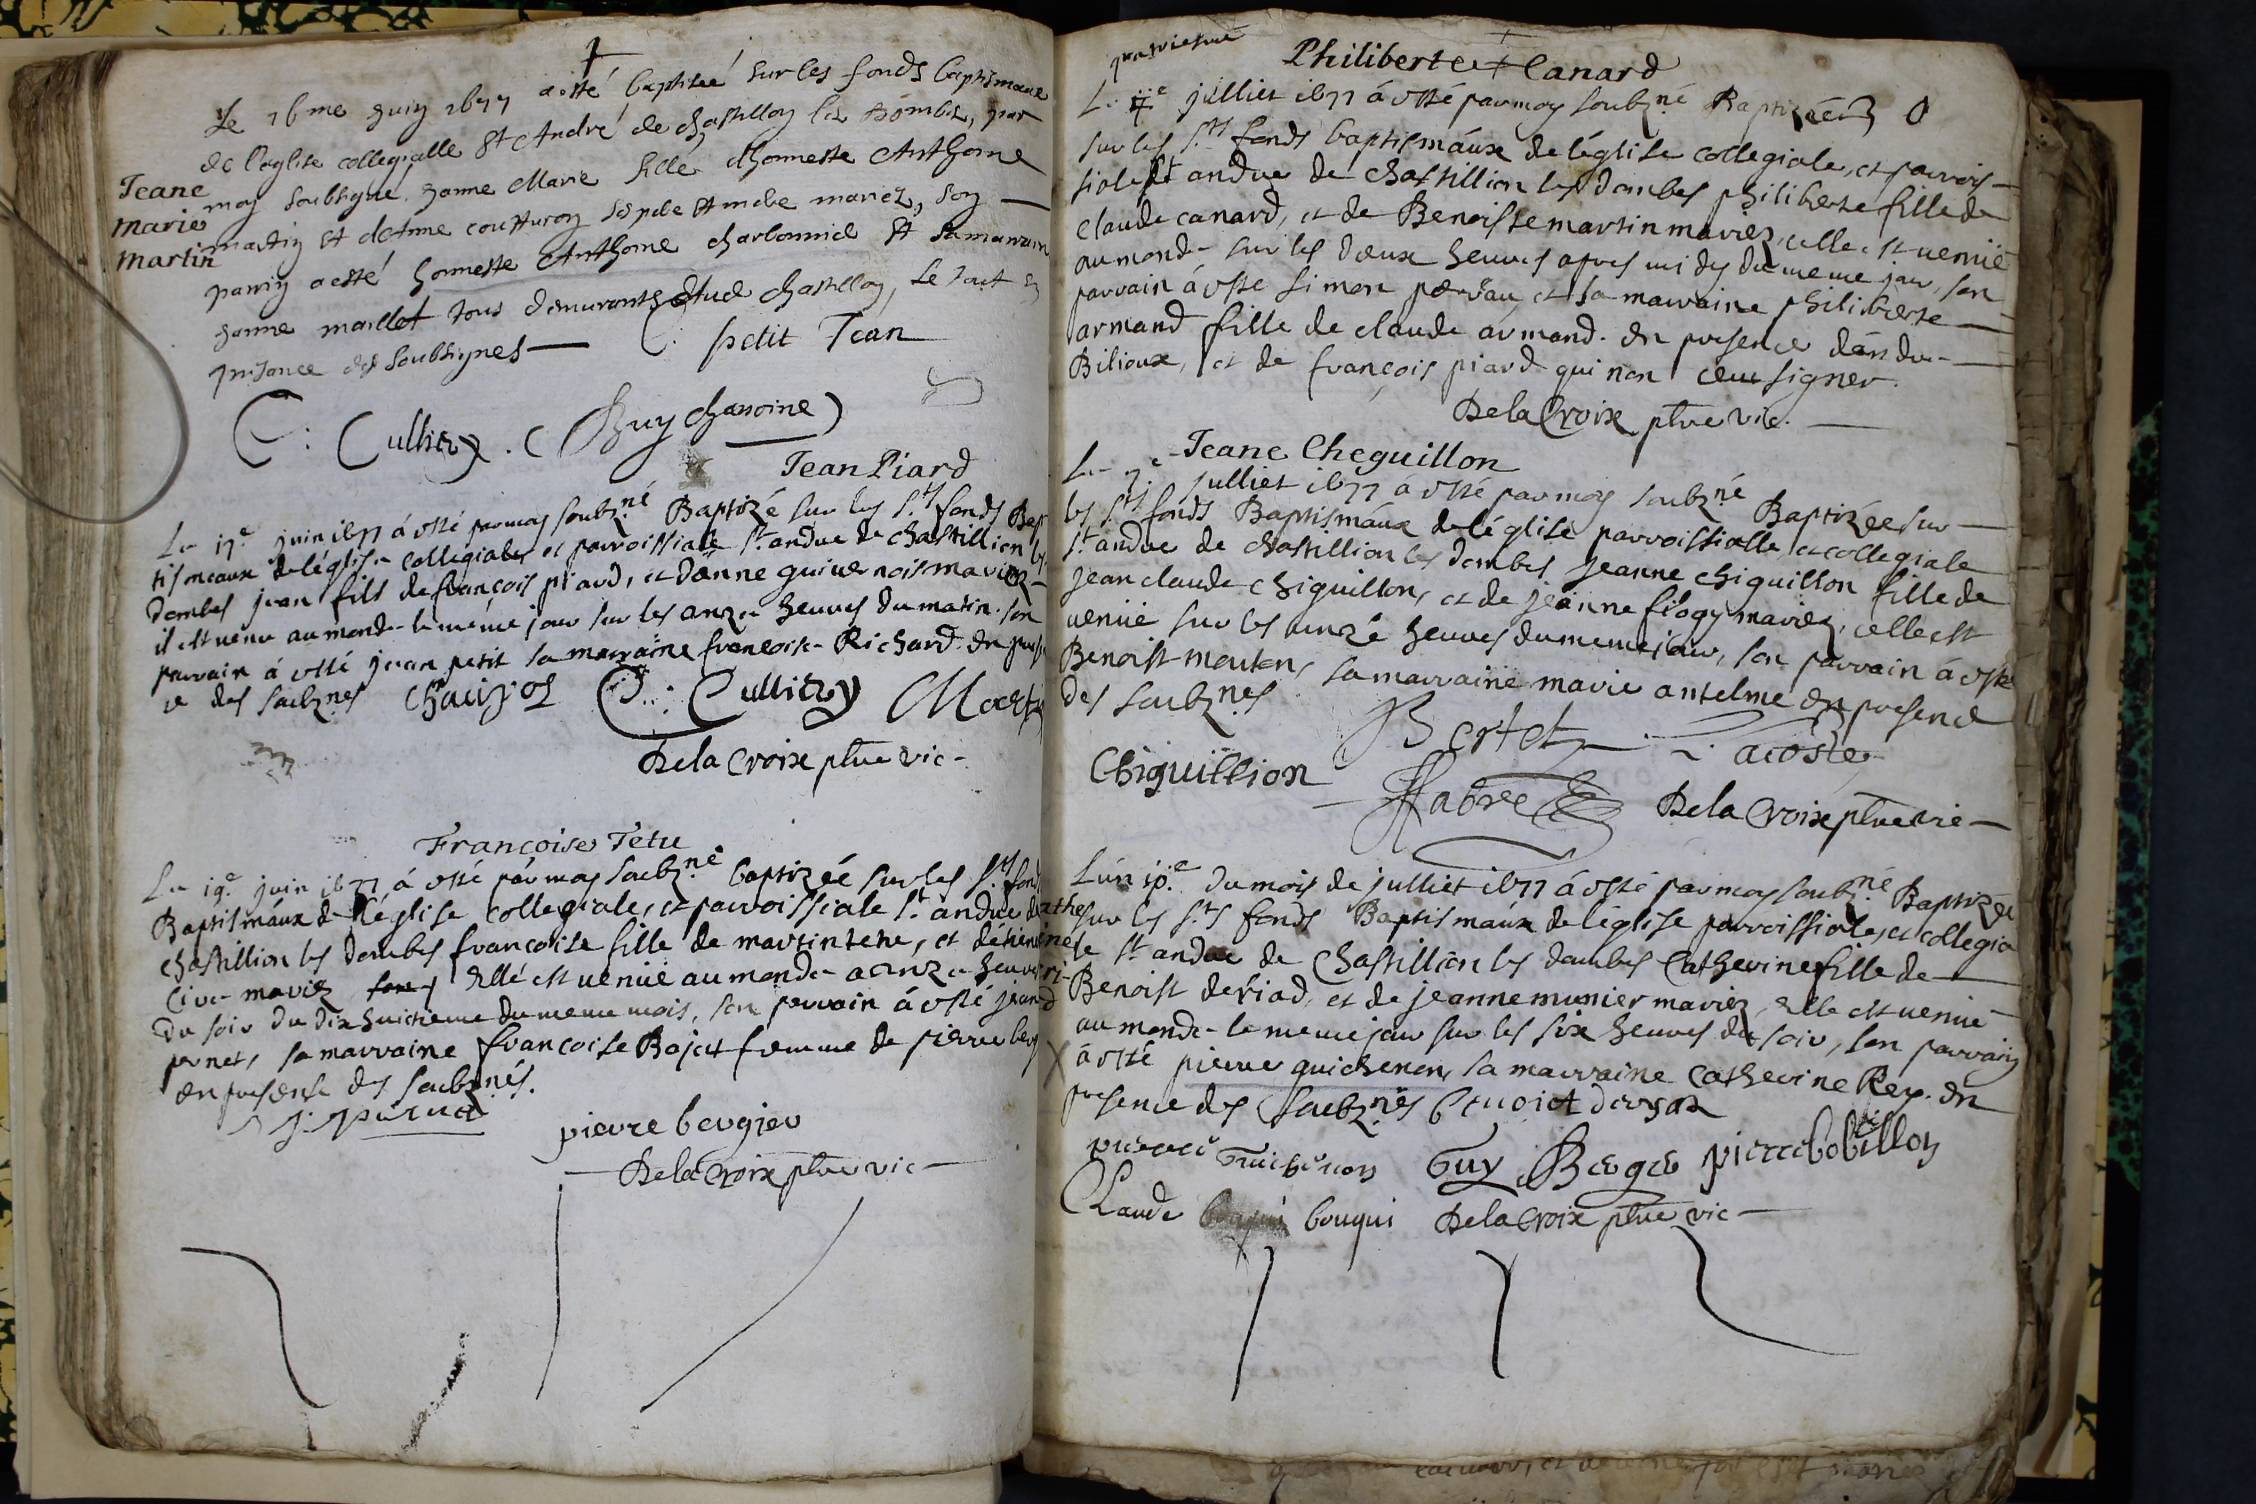 Le 16me Juin 1677 a esté baptisee sur les fonds baptismaux
de leglise collegialle St André de chastillon les Dombes, par
Jeane
Marie
Martin
moy soubsigne Janne Marie fille dhonneste Anthoine
martin et dAnne coutturon ses pere et mere mariez, son
parrin a esté honneste Anthoine charbonnie et sa marrain
Janne maillot tous demeurants audict chastillon, le tout en
presance des soubsignes
petit Jean
C. Culliery. (Buy chanoine)
Jean Piard
Le 17e juin 1677 à esté par moy soubzné Baptizé sur les sts fonds Bap
tismeaux de léglise collegiale et parroissiale st andre de chastillion les
dombes jean fils de françois piard, et danne guivernois mariez
il est venu au monde le méme jour sur les onze heures du matin. son
parrain à esté jean petit sa marraine francoise Richard. en presen
ce des soubznes
C: Culliery
De la Croix ptre vic
Françoise Tetu
Le 19e juin 1677 à esté pár moy soubzné baptizéé sur les sts fond
Baptismáux de léglise collegiale, et parroissiale st andre de
chastillion les dombes francoise fille de martin tetu, et détienne
Cire mariez Elle est venüe au monde a onze heures
du soir du dix huictieme du meme mois, son parrain à esté jean
pernet, sa marraine françoise Bajat femme de pierre berg
en presense des soubznés.
J. pernet
pierre bergier
De la Croix ptre vic
Philiberte Canard
Le 4e julliet 1677 á esté par moy soubzné Baptizéé
sur les sts fonds baptismáux de léglise collegiale, et parrois
siale st andre de chastillion les dombes philiberte fille de
claude canard, et de Benoiste martin mariez, elle est venüe
au monde sur les deux heures apres midy du meme jour, son
parrain à esté simon perrau, et sa marraine philiberte
armand fille de claude armand. en presence dandre
Bilioux, et de françois piard qui non ceu signer.
De la Croix ptre vic.
Jeane Cheguillon
Le 7e julliet 1677 à esté par moy soubzné Baptizée sur
les sts fonds Baptismáux de léglise parroissialle, et collegiale
st andre de chastillion les dombes jeanne chiguillon fille de
jean claude chiguillon, et de jéanne flogy mariez, elle est
venüe sur les unze heures du meme jour, son parrain à esté
Benoist mouton, sa marraine marie antelme en presence
des soubznes
Bertet
Lacoste
Chiguillion
Fabre
De la Croix ptre vic
Lún 10e du mois de julliet 1677 à esté par moy soubzné Baptizée
sur les sts fonds Baptismáux de léglise parroissiale, et collegia
le st andre de Chastillion les dombes Catherine fille de
Benoist deriad, et de jeanne munier mariez, Elle est venüe
au monde le meme jour sur les six heures du soir, son parrain
à esté pierre guichenon, sa marraine Catherine Rey. en
presence des soubznés benoict
pierre Guichenon Guy Berger pierre bobillon
Claude bouqui De la Croix ptre vic